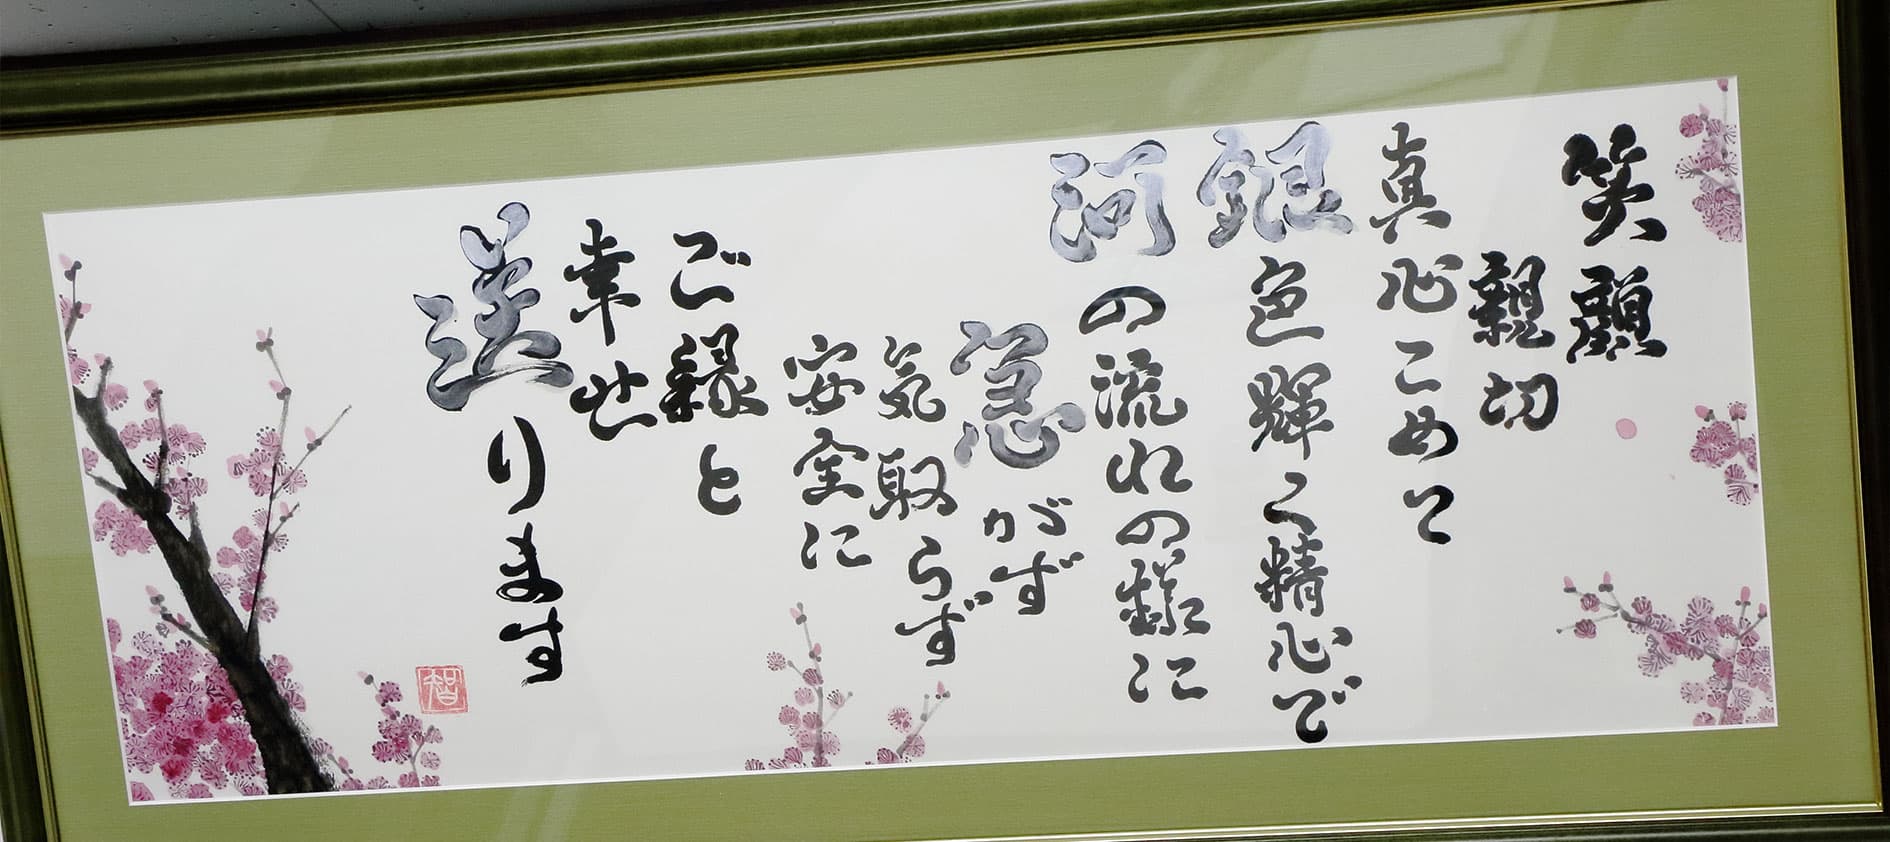 笑顔
親切
真心こめて
銀色輝く精心で
河の流れの様に
急がず
気取らず
安全に
ご縁と
幸せ
送ります
智